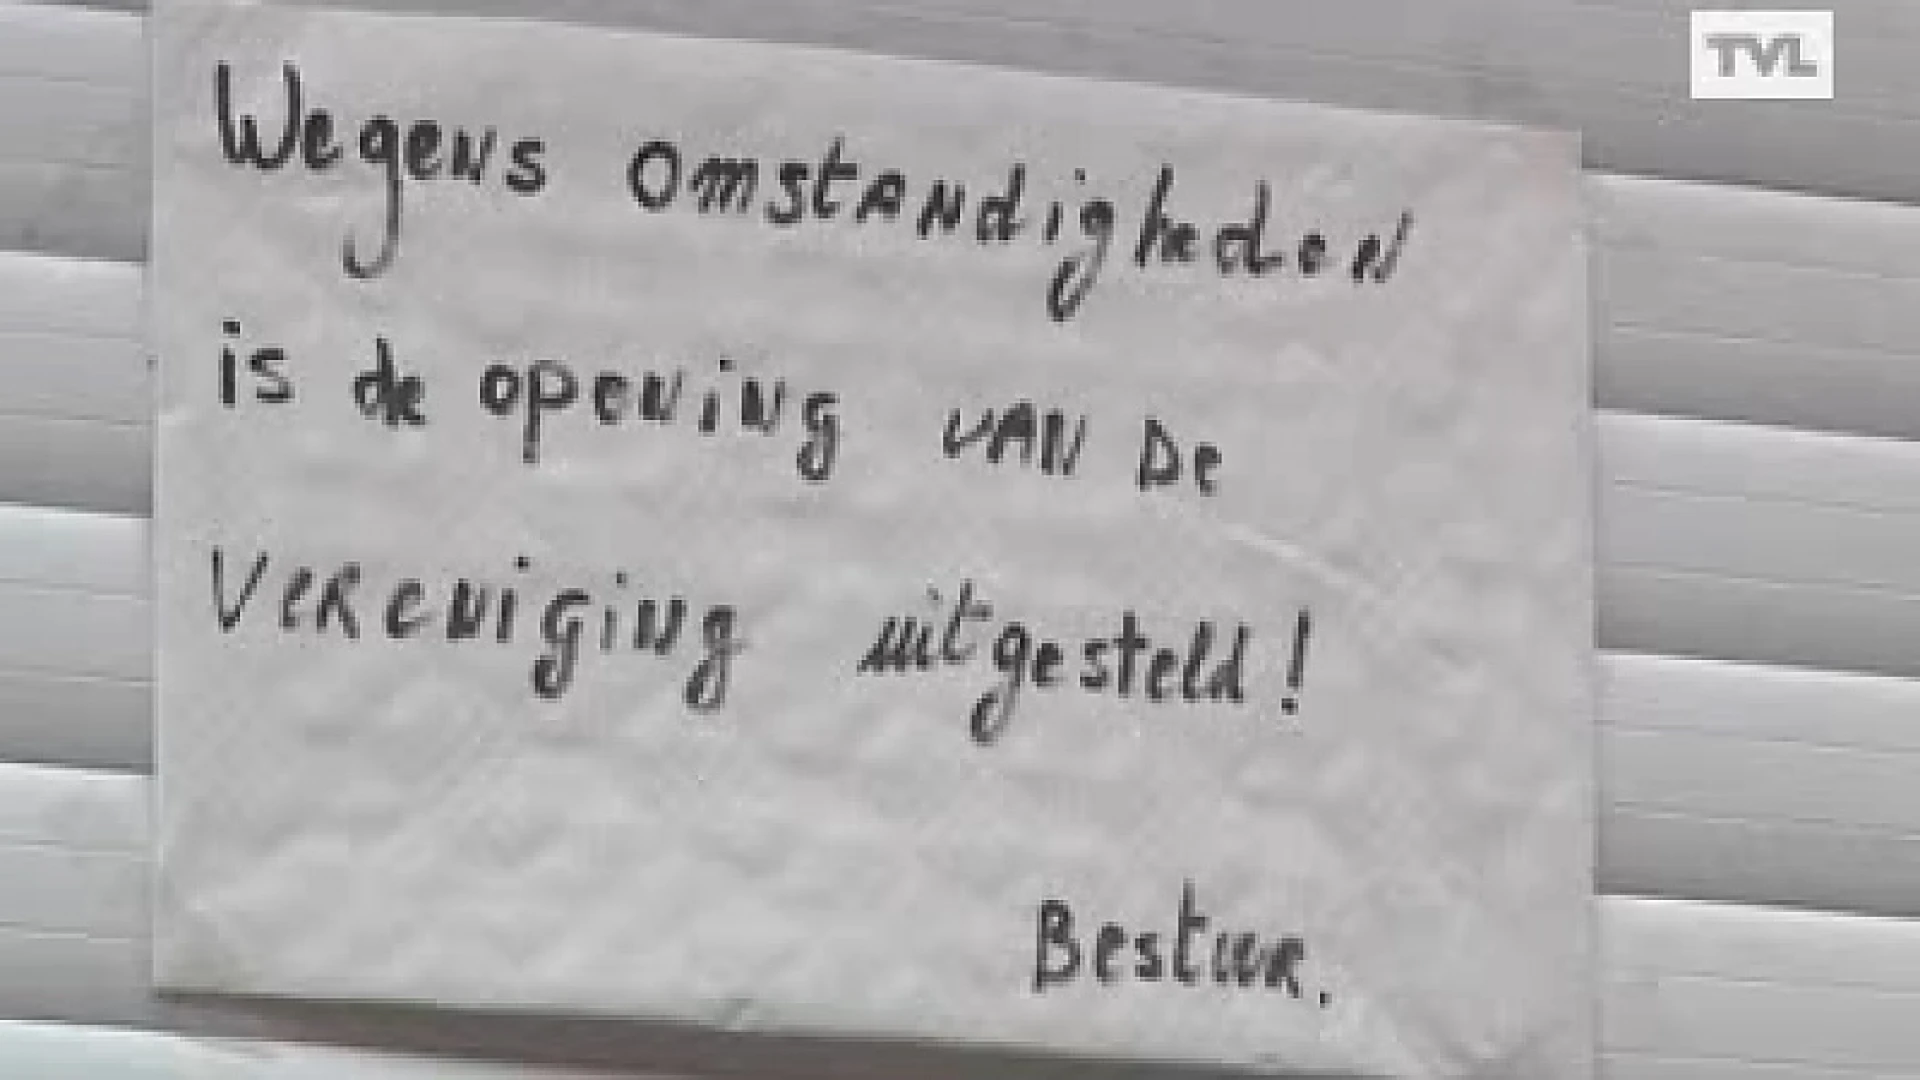 TVL
Wegens omstandigheden
is de opening van de
vereniging uitgesteld!
Bestuur.